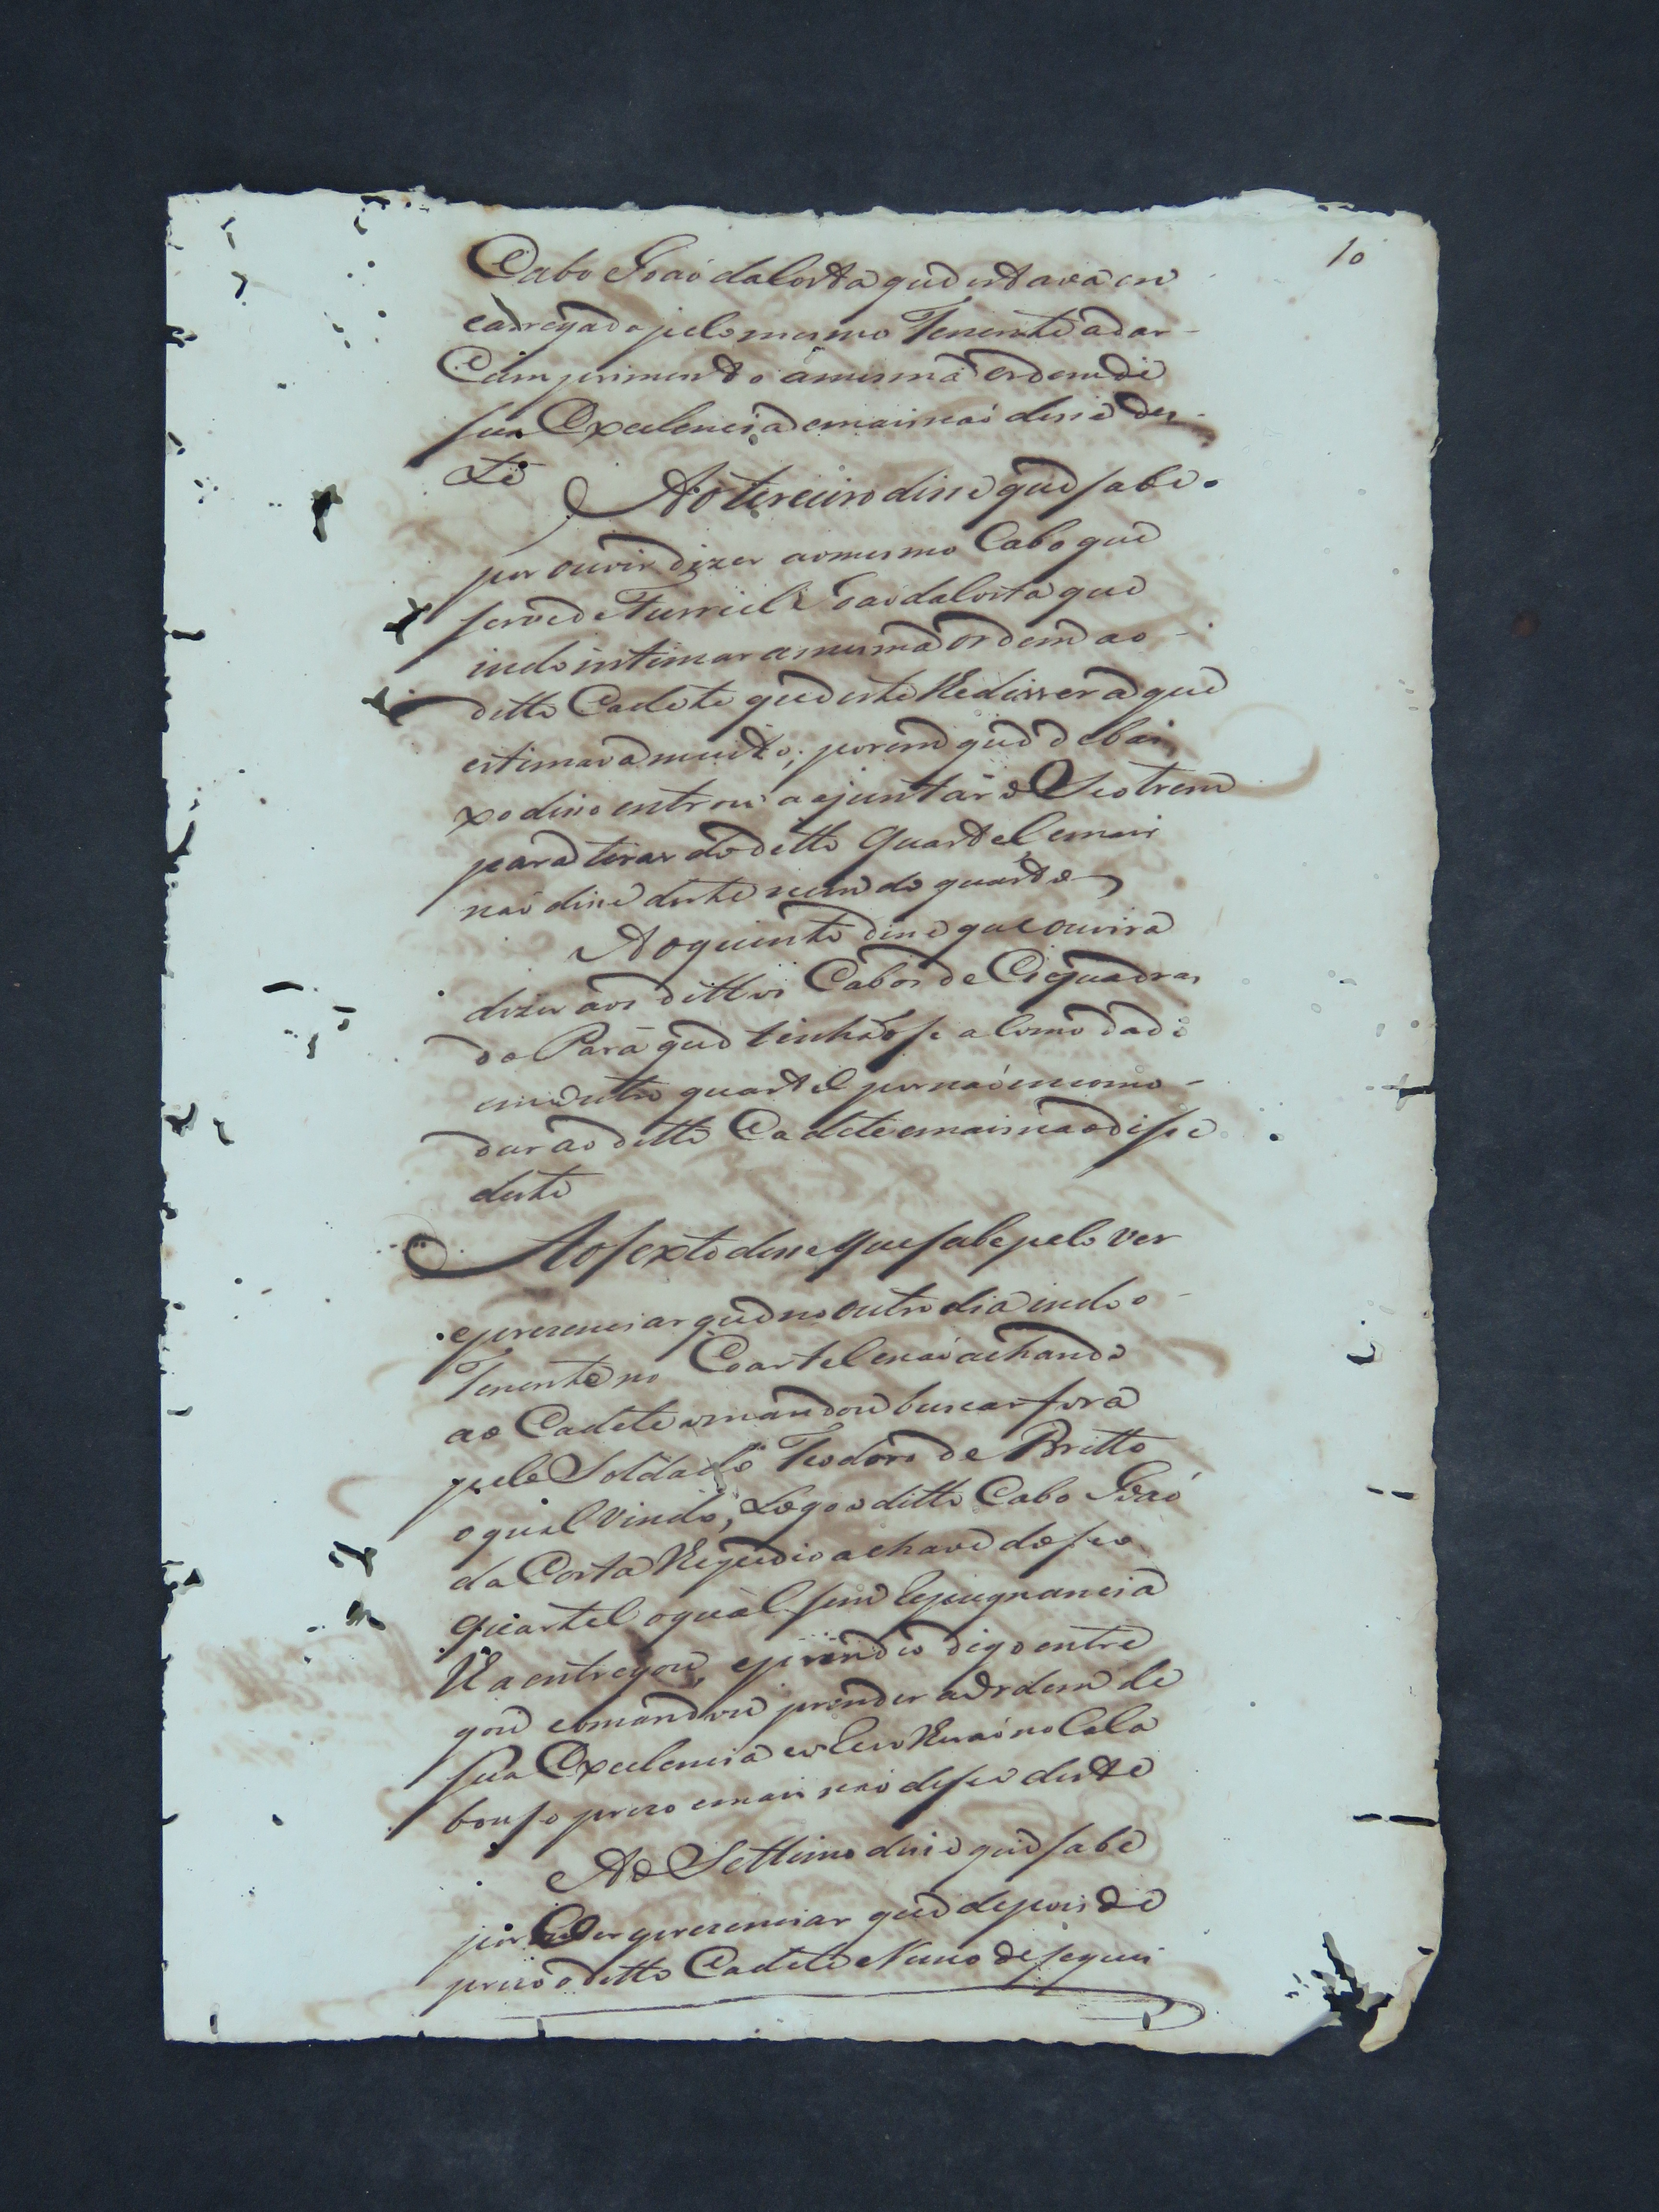 10
Cabo Joaõ da Costa que estava en
cadregado pelo mesmo Tenente a dar
Cumprimento â mesma ordem de
sua Excelencia e mais naõ disse des
te
Ao terceiro disse que sabe
por ouvir dizer ao mesmo Cabo que
serve de Furriel Joaõ da Costa que
indo intimar a mesma ordem ao
ditto Cadete que este lhe dissera que
estimava muito; porem que debai
xo disso entrou a ajuntar o Seo trem
para tirar do ditto quartel e mais
naõ disse deste nem do quarto
Ao quinto disse que ouvira
dizer aos dittos Cabos de Esquadras
do Pará que tinhaõ se acomodado
em outro quartel por naõ incomo
dar ao ditto Cadete e mais naõ disse
deste
Ao sexto disse que sabe pelo ver
e prezenciar que no outro dia indo o
Tenente no Coartel e naõ achando
ao Cadete o mandou buscar fora
pelo Soldado Teodoro de Britto
o qual vindo, Logo o ditto Cabo Joaõ
da Costa lhe pedio a chave do seo
quartel o qual sem Repugnancia
lha entregou, e prendeo digo entre
gou e o mandou prender a ordem de
sua Excelencia e o levaraõ no Cala
bouso prezo e mais naõ disse deste
Ao Settimo disse que sabe
por ver prezenciar que depois de
prezo o ditto Cadete Nuno de sequei